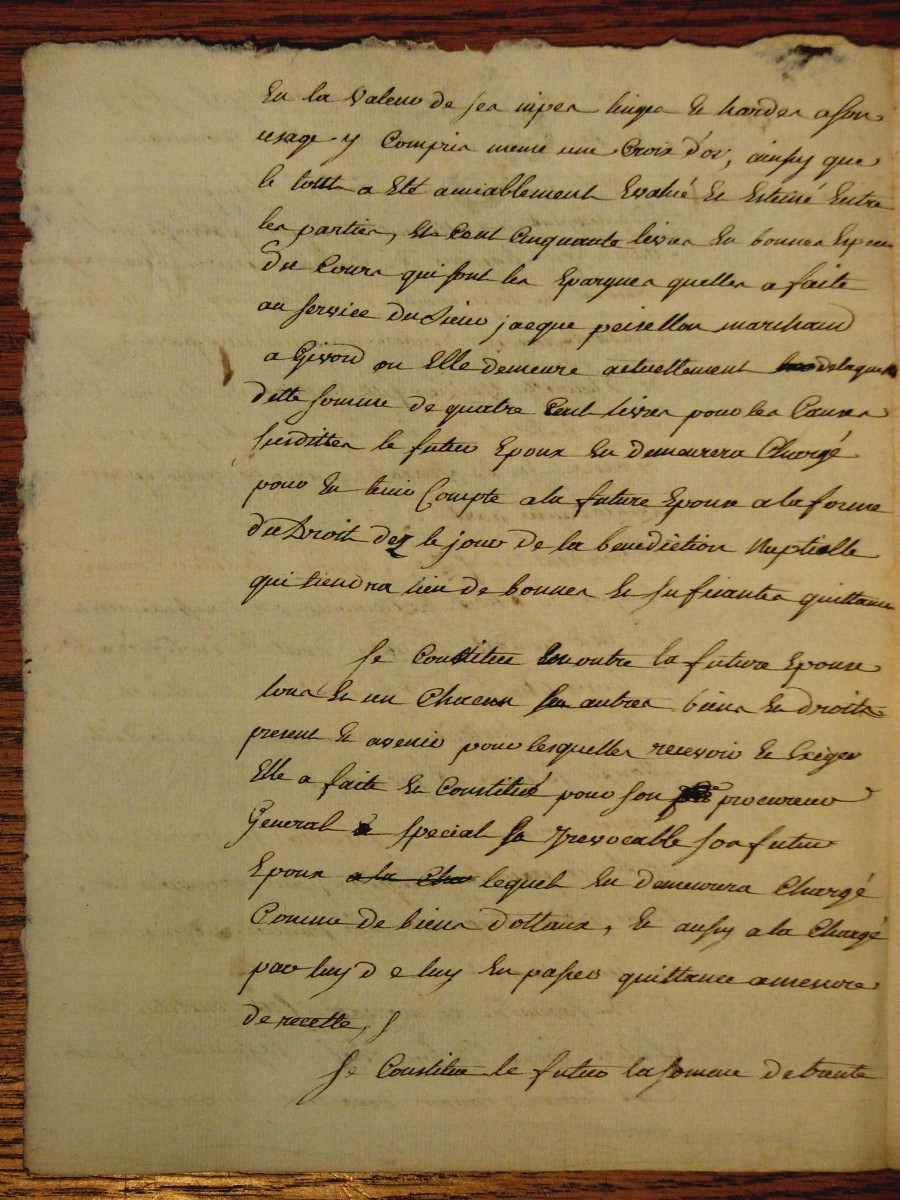 En la valeur de ses nipes linges et hardes a son
usage y compris meme une croix d'or, ainsy que
le tout a eté amiablement evalué et estimé entre
les parties, et cent cinquante livres en bonnes especes
du cours qui sont les epargnes quelles a faite
au service du sieur jacque peisellon marchand
a Givord ou elle demeure actuellement de laquelle
ditte somme de quatre cent livres pour les causes
susdittes le futur epoux en demeurera chargé
pour en tenir compte a la future epouse a la forme
du droit dez le jour de la benediction nuptialle
qui tiendra lieu de bonnes et sufisantes quittance
se constitue en outre la future epouse
tous et un chacun ses autres biens et droits
present et avenir pour lesquelles recevoir et exiger
elle a faite et constitué pour son procureur
General & special et irrevocable son futur
epoux a la char lequel en demeurera chargé
comme de biens dottaux, et aussy a la chargé
par luy d e luy en passer quittance a mesure
de recette, /
se constitue le futur la somme de trente